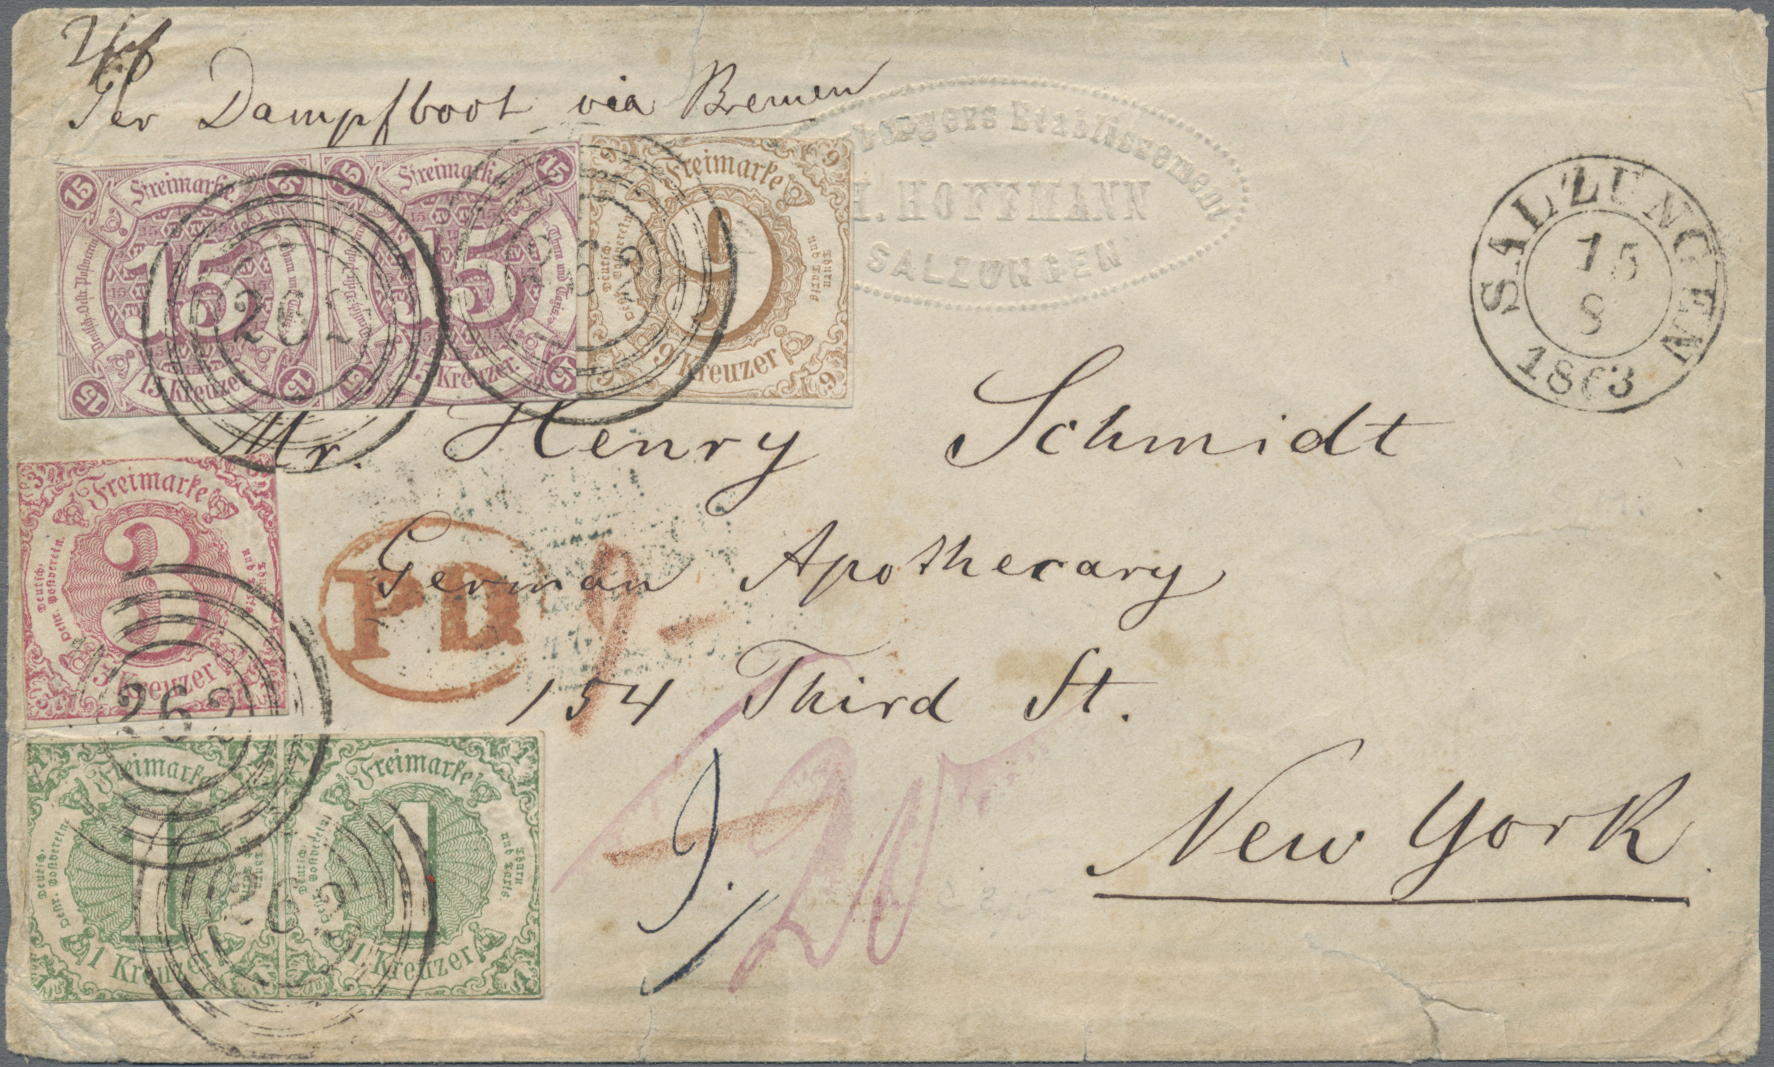 Per Dampfboot via Bremen
15 Freimarke 15 15 Freimarke 15
15 15
15 Kreuzer 15 15 Kreuzer 15
262
Freimarke
9
9 Kreuzer
262
Etablissement
H. HOFFMANN
SALZUNGEN
SALZUNGEN
15
8
1863
Mr. Henry Schmidt
German Apothecary
154 Third St.
New York
Freimarke
3
3 Kreuzer
262
PD
Freimarke Freimarke
1 1
1 Kreuzer 1 Kreuzer
262
20